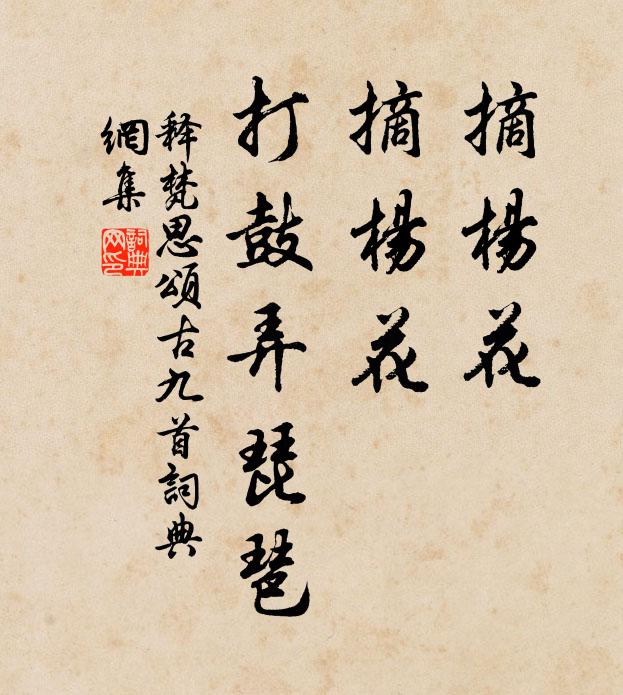 摘楊花
摘楊花
打鼓弄琵琶
释梵思頌古九首詞典
網集
詞典
网印